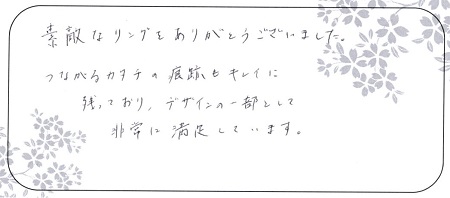 素敵なリングをありがとうございました。
つながるカタチの痕跡もキレイに
残っており、デザインの一部として
非常に満足しています。